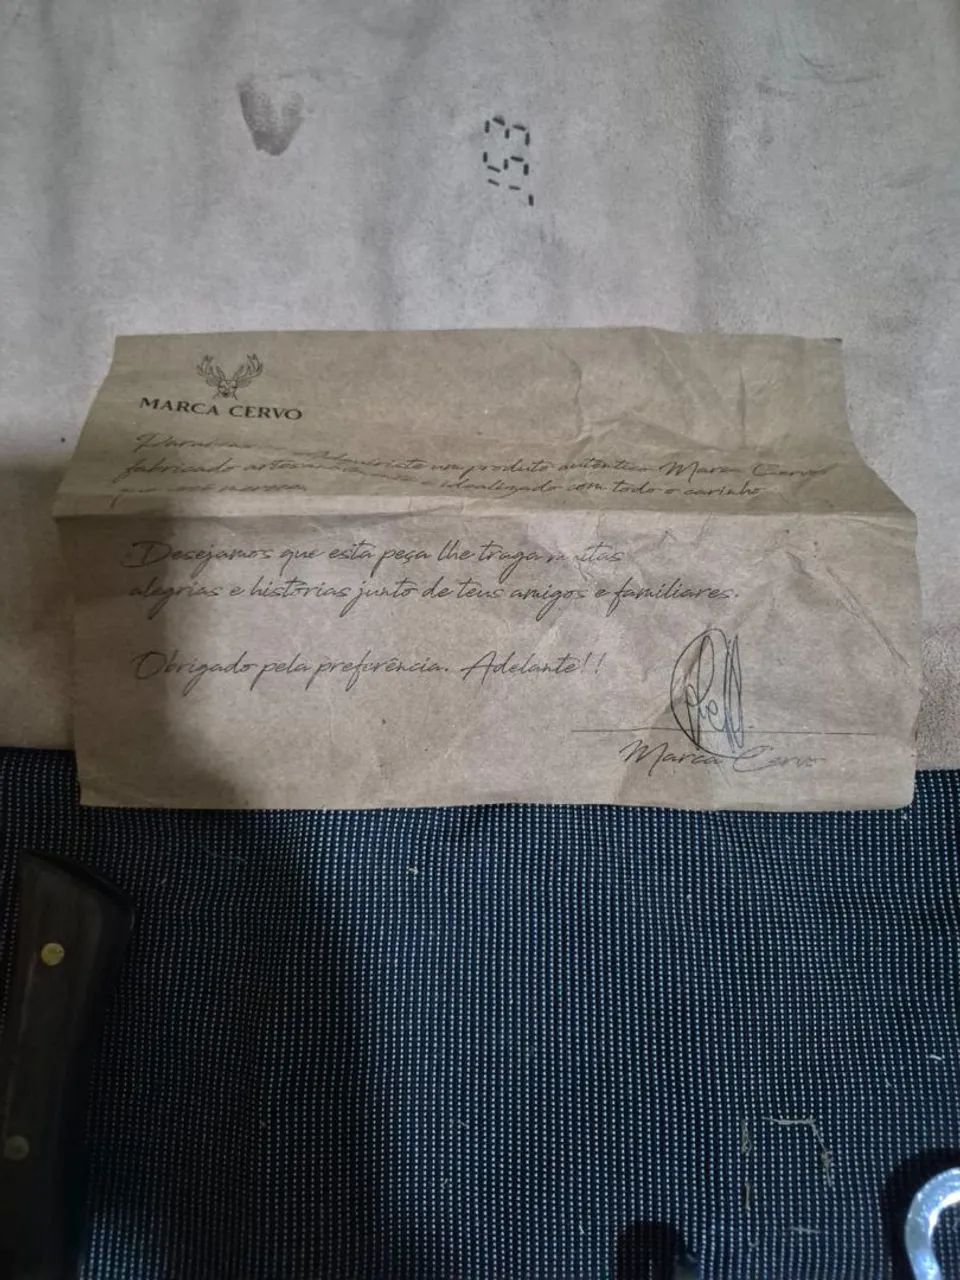 153
MARCA CERVO
adquiriste um produto autêntico Marca Cervo
fabricado idealizado com todo o carinho
que você merece.
Desejamos que esta peça lhe traga muitas
alegrias e histórias junto de teus amigos e familiares.
Obrigado pela preferência. Adelante!!
Marca Cervo